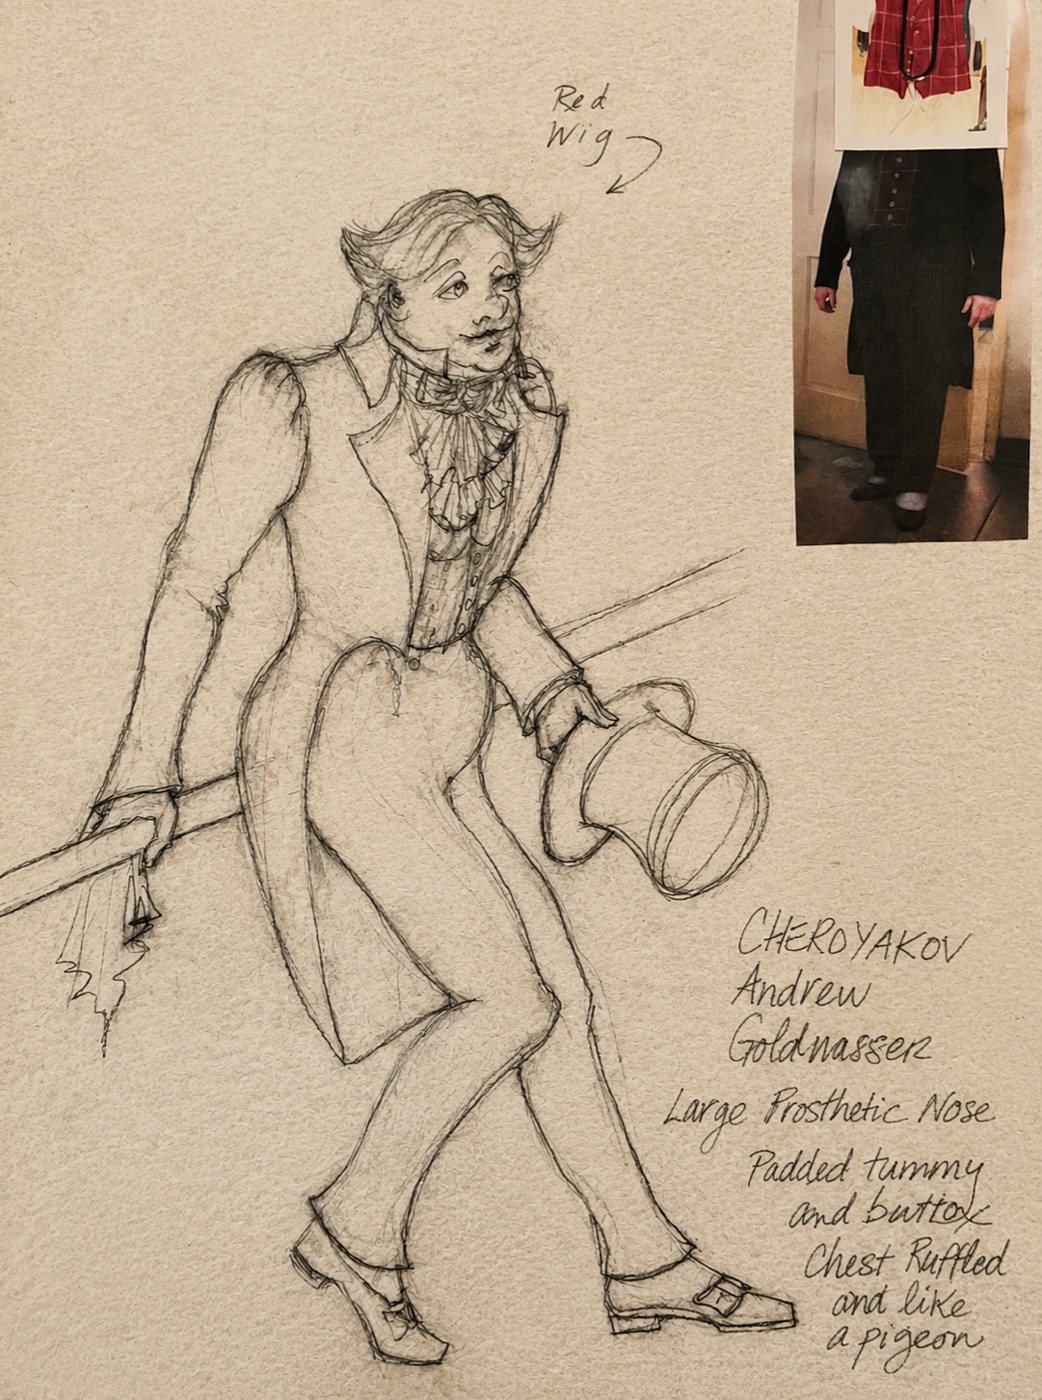 Red
Wig
CHEROYAKOV
Andrew
Goldwasser
Large Prosthetic Nose
Padded tummy
and buttox
Chest Ruffled
and like
a pigeon